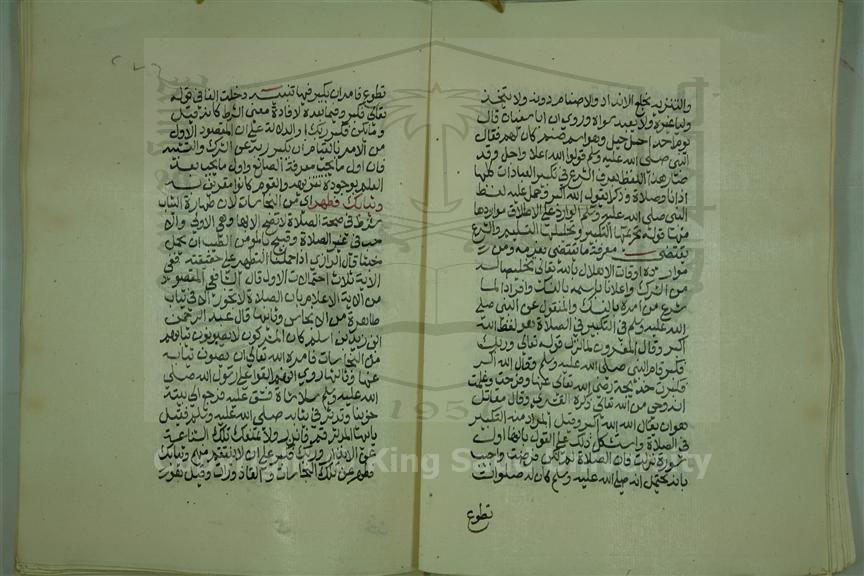 والتنزيه بخلع الانداد والاصنام دونه ولا يتخذ
وليا غيره ولا يعبد سواه وروي ان ابا سفيان قال
يوم احد اعل هبل وهو اسم صنم كان لهم فقال
النبي صلى الله عليه وسلم قولوا الله اعلا واجل وقد
صار هذا اللفظ بعرف الشرع في تكبير العبادات كلها
اذانا وصلاة وذكرا بقول الله اكبر وحمل عليه لفظ
النبي صلى الله عليه وسلم الوارد على الاطلاق مواردها
منها قوله تحريمها التكبير وتحليلها التسليم والشرع
يقتضي بعرفه ما يقتضي بعمومه ومن
موارده اوقات الاهلال بالله تعالى تخليصا له
من الشرك واعلانا باسمه بالنسك وافرادا لما
شرع من امره بالنسك والمنقول عن النبي صلى
الله عليه وسلم في التكبير في الصلاة هو لفظ الله
اكبر وقال المفسرون لما نزل قوله تعالى وربك
فكبر قام النبي صلى الله عليه وسلم وقال الله اكبر
فكبرت خديجة رضي الله تعالى عنها وفرحت وعلمت
انه وحي من الله تعالى ذكره القشيري وقال مقاتل
هو ان يقال الله اكبر وقيل المراد منه التكبير
في الصلاة واستشكل ذلك على القول بانها اول
سورة نزلت فان الصلاة لم تكن فرضت واجيب
بانه يحتمل انه صلى الله عليه وسلم كان له صلوات
تطوع
تطوع فامر ان يكبر فيها تنبيه دخلت الفا في قوله
تعالى فكبر وفيما بعده لافادة معنى الشرط كانه قيل
وما يكن فكبر ربك او الدلالة على ان المقصود الاول
من الامر بالقيام ان يكبر ربه عن الشرك والتشبيه
فان اول ما يجب معرفة الصانع واول ما يجب بعد
العلم بوجوده تنزيهه والقوم كانوا مقرين به
وثيابك فطهر اي من النجاسات لان طهارة الثياب
شرط في صحة الصلاة لا تصح الا بها وهي الاولى والاحب
في غير الصلاة وقبيح بالمومن الطيب ان يحمل
خبثا قال الرازي اذا حملنا التطهير على حقيقته ففي
الاية ثلاث احتمالات الاول قال الشافعي المقصود
من الاية الاعلام بان الصلاة لا تجوز الا في ثياب
طاهرة من الانجاس وثانيها قال عبد الرحمن
ابن زيد بن اسلم كان المشركون لا يصونون ثيابهم
من النجاسات فامره الله تعالى ان يصون ثيابه
عنها وثالثها روي انهم القوا على رسول الله صلى
الله عليه وسلم سلا شاة فشق عليه فرجع الى بيته
حزينا وتدثر في ثيابه صلى الله عليه وسلم فقيل
يا ايها المدثر قم فانذر ولا تمنعك تلك الشناعة
عن الانذار وربك فكبر على ان لا ينتقم منهم وثيابك
فطهر عن تلك النجاسات والقاذورات وقيل
King Saud University
1957